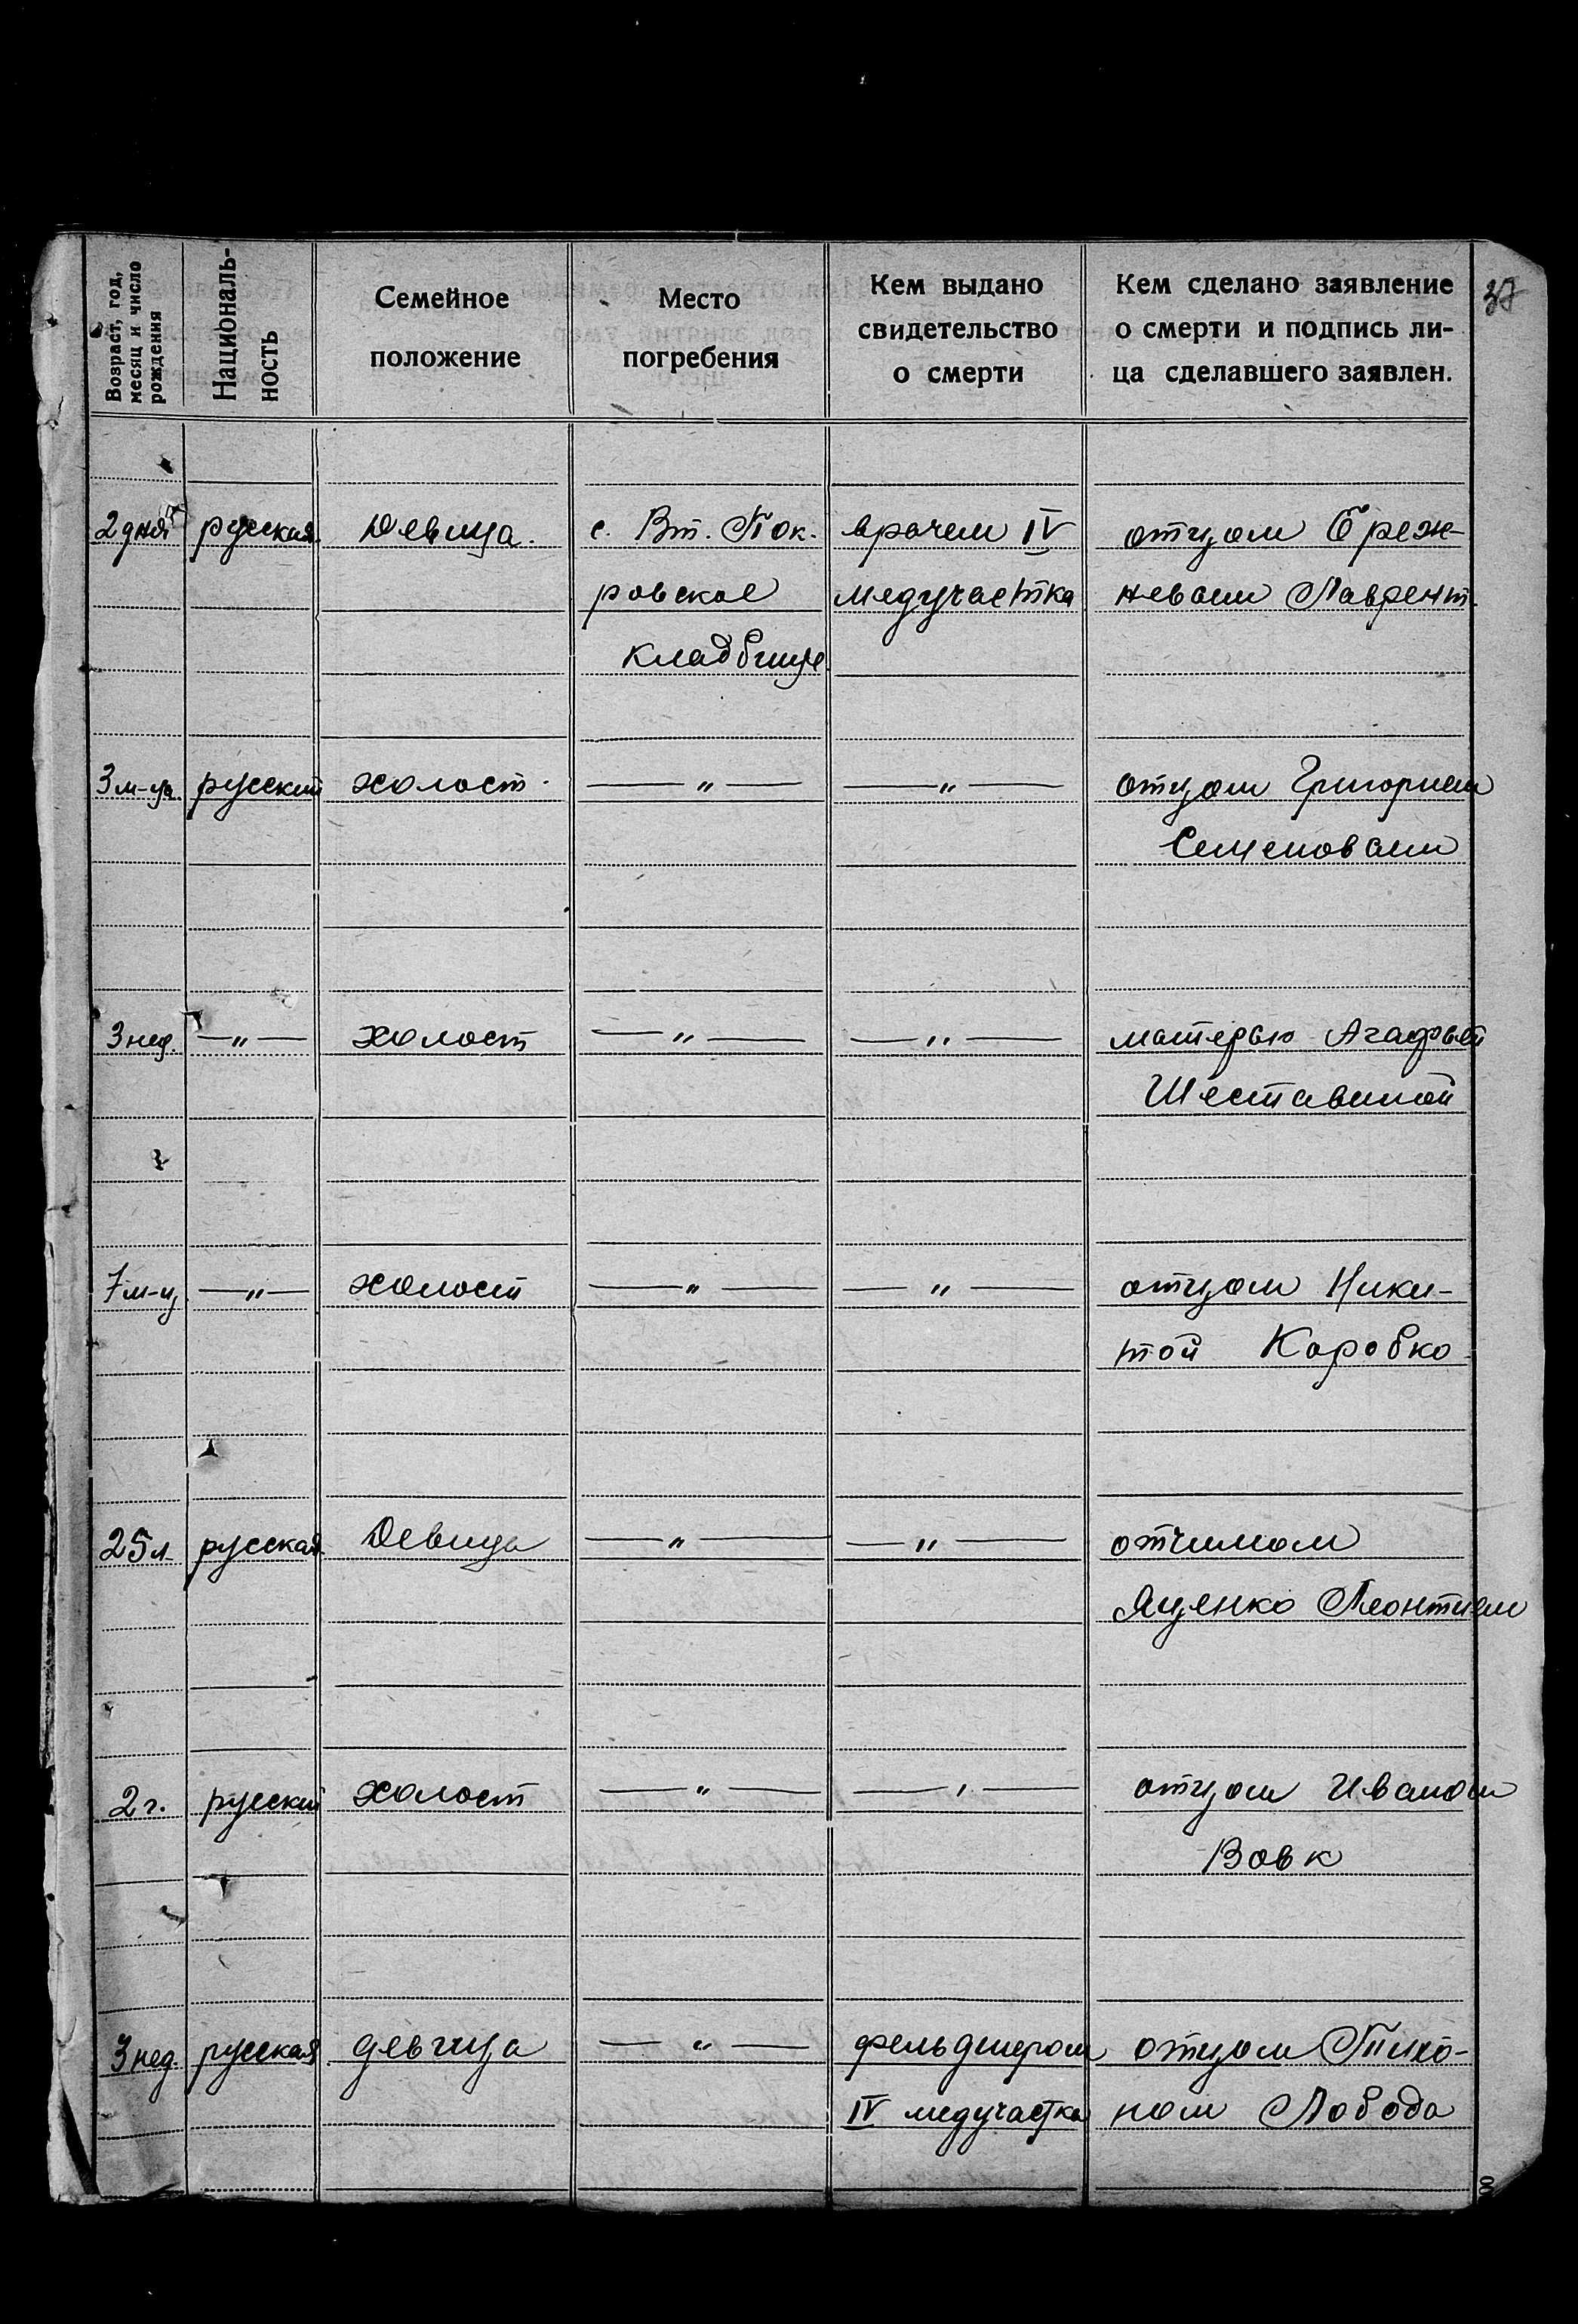 Возраст, год,
месяц и число
рождения
Националь-
ность
Семейное
положение
Место
погребения
Кем выдано
свидетельство
о смерти
Кем сделано заявление
о смерти и подпись ли-
ца сделавшего заявлен.
37
2 дня русская. Девица. с. Вт. Пок. врачем IV отцом Бреж-
ровское медучастка невым Лаврент.
кладбище
3 м-ца. русский холост. — " — — " — отцом Григорием
Семеновым
3 нед. — " — холост — " — — " — матерью Агафьей
Шеставиной
7 м-ц — " — холост — " — — " — отцом Ники-
той Коробко
25 л. русская Девица — " — — " — отчимом
Яценко Леонтием
2 г. русский холост — " — — " — отцом Иваном
Вовк
3 нед. русская девица — " — фельдшером отцом Тихо-
IV медучастка ном Лобода